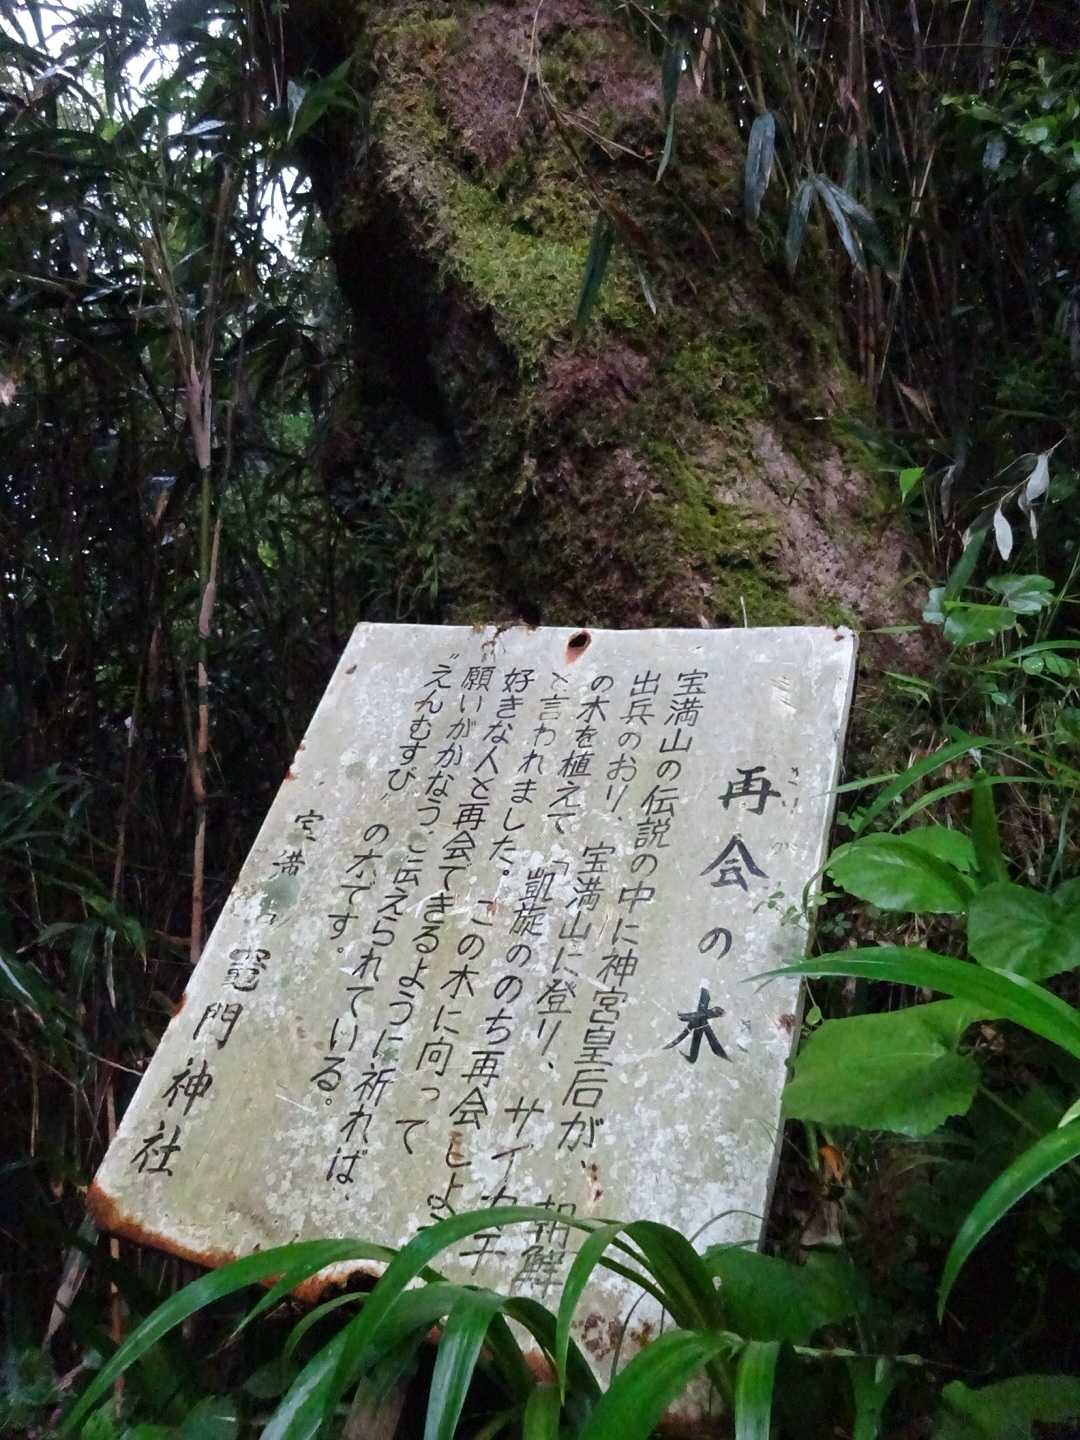 再会の木
宝満山の伝説の中に神宮皇后が、朝鮮
出兵のおり、宝満山に登り、サイカチ
の木を植えて「凱旋ののち再会しよう
と言われました。この木に向って
好きな人と再会できるように祈れば、
願いがかなうと伝えられている。
"えんむすび"の木です。
宝満山竈門神社